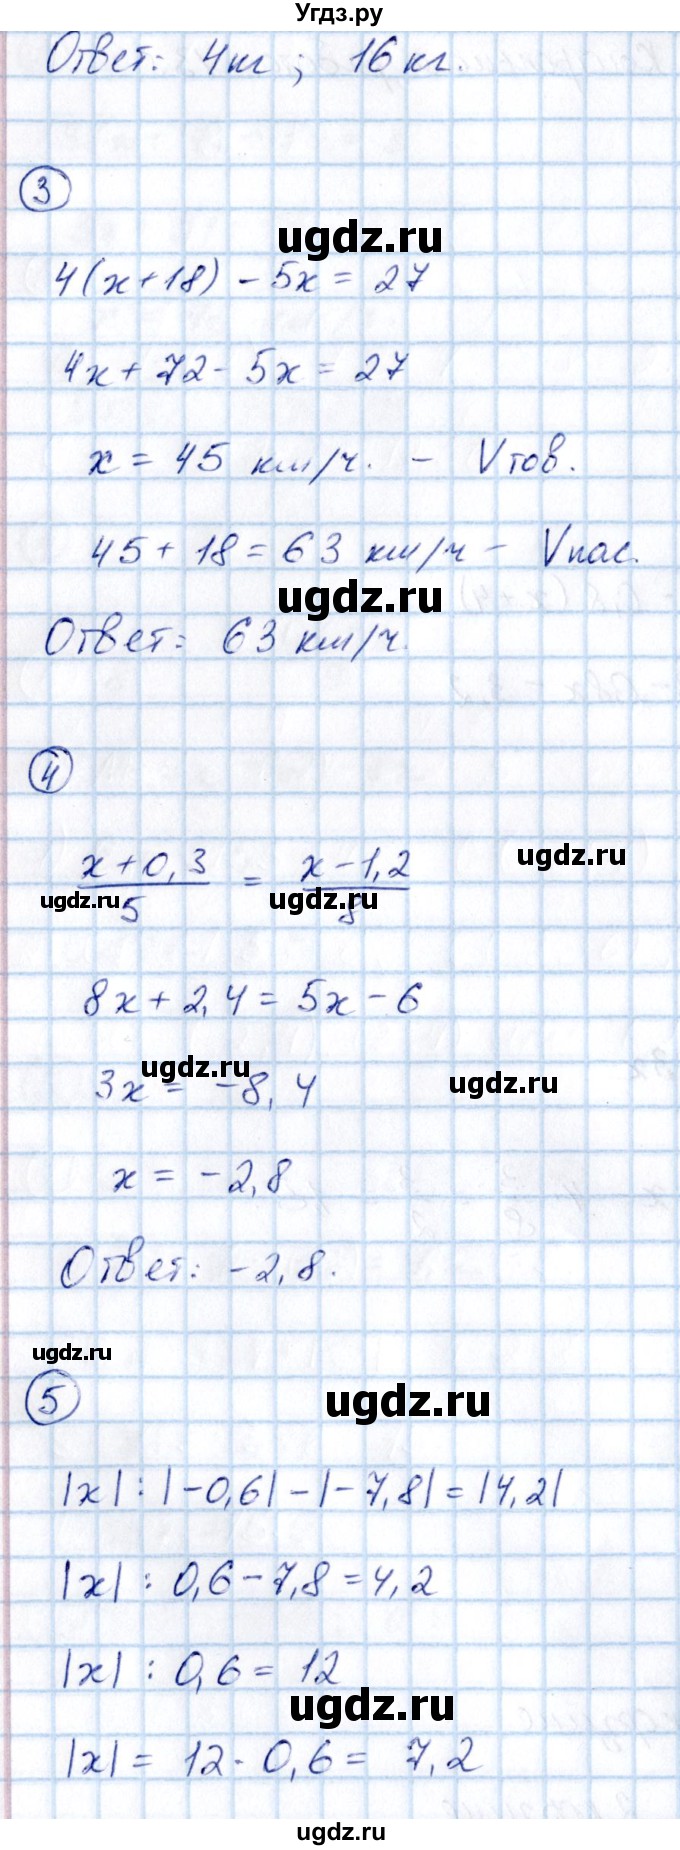 Угдз.ру
Ответ: 4кг ; 16 кг.
3
ugdz.ru
4(x+18) - 5x = 27
4x + 72 - 5x = 27
x = 45 км/ч. - Vтов.
45 + 18 = 63 км/ч - Vпас.
ugdz.ru
Ответ: 63 км/ч.
4
x+0,3 / 5 = x-1,2 / 8
ugdz.ru
ugdz.ru ugdz.ru
8x + 2,4 = 5x - 6
ugdz.ru
3x = -8,4
ugdz.ru
x = -2,8
Ответ: -2,8.
ugdz.ru
5
ugdz.ru
|x| : |-0,6| - |-7,8| = |4,2|
|x| : 0,6 - 7,8 = 4,2
|x| : 0,6 = 12
ugdz.ru
|x| = 12 · 0,6 = 7,2
ugdz.ru